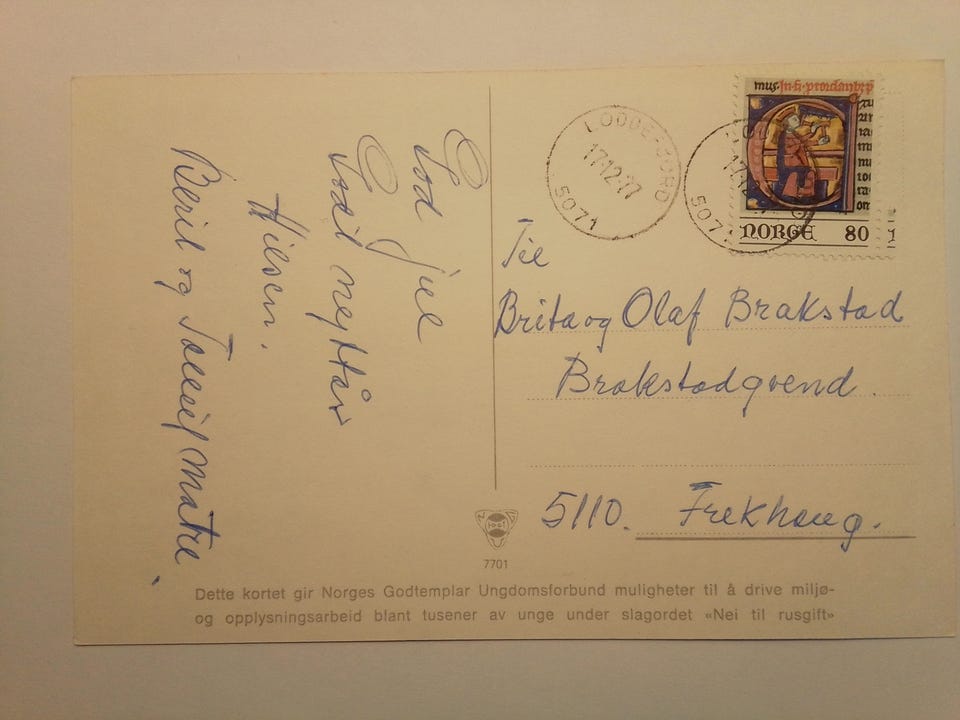 God Jul
Godt nyttår
Hilsen.
Beril og Matre
LODDEFJORD
17.12.77
5071
17.12
5071
mus.
NORGE 80
Til
Brita og Olaf Brakstad
Brakstadgrend.
5110. Frekhaug.
7701
Dette kortet gir Norges Godtemplar Ungdomsforbund muligheter til å drive miljø-
og opplysningsarbeid blant tusener av unge under slagordet «Nei til rusgift»